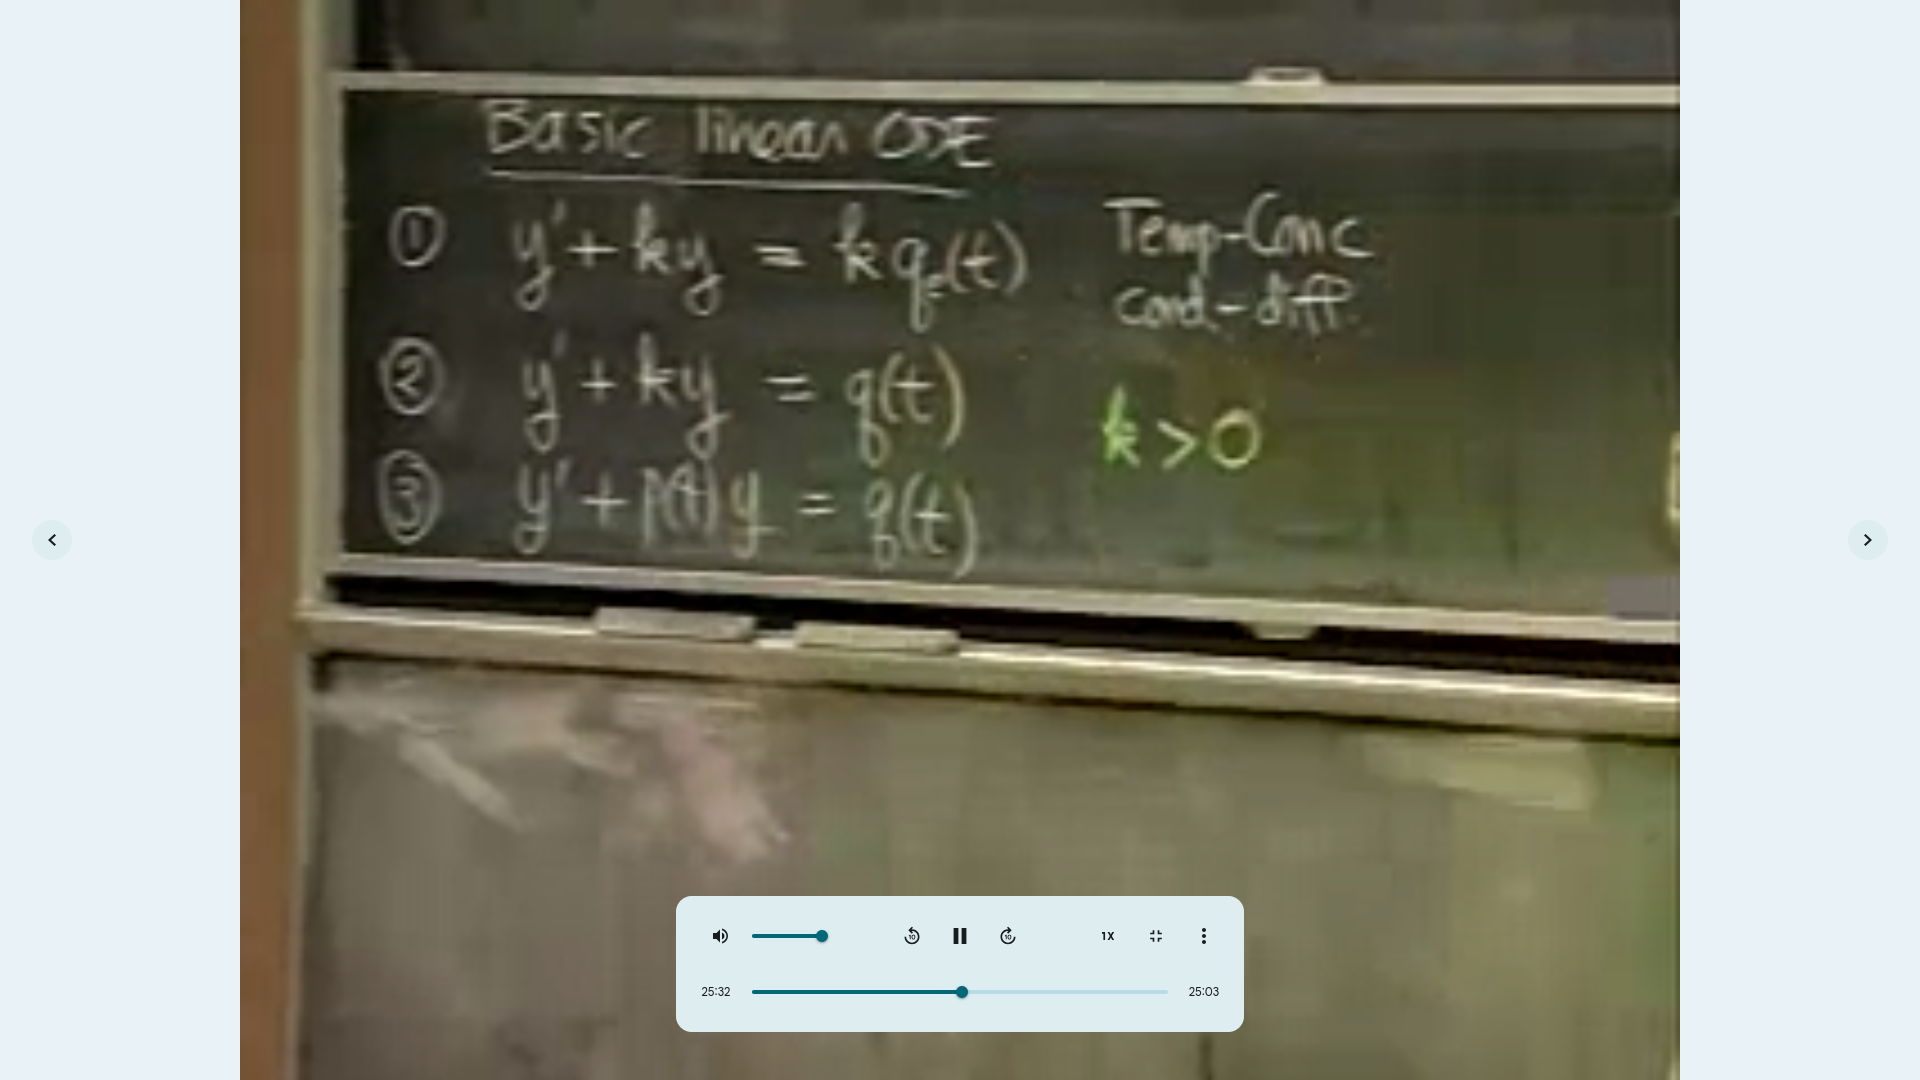 Basic linear ODE
① y' + ky = k qₑ(t)
Temp-Conc
cond-diff.
② y' + ky = q(t)
k > 0
③ y' + p(t) y = q(t)
10
10
1X
25:32
25:03